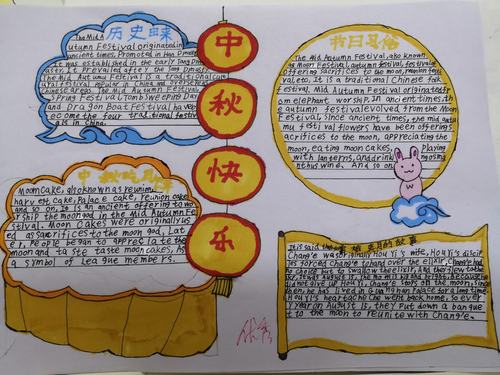 历史由来
The Mid
Autumn Festival originated in
ancient times, Promoted in Han Dynasty
It was established in the early Tang Dyn
asty. It Prevailed after the Song Dynasty
The Mid Autumn Festival is a traditional cul
Chinese areas. The Mid Autumn Festival
Spring Festival, Tomb Sweeping Day
and Dragon Boat Festival have b
ecome the four traditional festiv
als in China.
中
秋
快
乐
节日习俗
The Mid Autumn Festival, also known
as Moon Festival, autumn festival, festival of
offering sacrifices to the moon, reunion fes
tival etc. It is a traditional Chinese folk
festival. Mid Autumn Festival originated fr
om elephant worship. In ancient times, th
e autumn festival evolved from the Moon
Festival, since ancient times, the mid aut
umn festival flowers have been offering
sacrifices to the moon, appreciating the
moon, eating moon cakes, Playing
with lanterns, and drink
thus wine. And so on
中秋吃月饼
Moon Cake, also known as reunion
harvest Cake, Palace cake, reunion cake
and so on, It is an ancient offering to wor
ship the moon god in the Mid Autumn Fe
stival. Moon Cakes were originally us
ed as sacrifice to the moon god, Lat
er, People began to appreciate the
moon and taste taste moon cakes, As
a symbol of league members.
嫦娥奔月的故事
It is said that
Chang'e was originally Hou Yi's wife, Hou Yi's discip
les forced Chang'e to hand over the elixir, Chang'e had
no choice but to swallow the elixir, and then flew to the
did not give up Hou Yi, Chang'e stops on the moon, since
then, he has lived in Guanghan Palace for a long time.
Hou Yi's heartache che went back home, so ever
y year on August 15, they put down a banque
t to the moon to reunite with Chang'e.